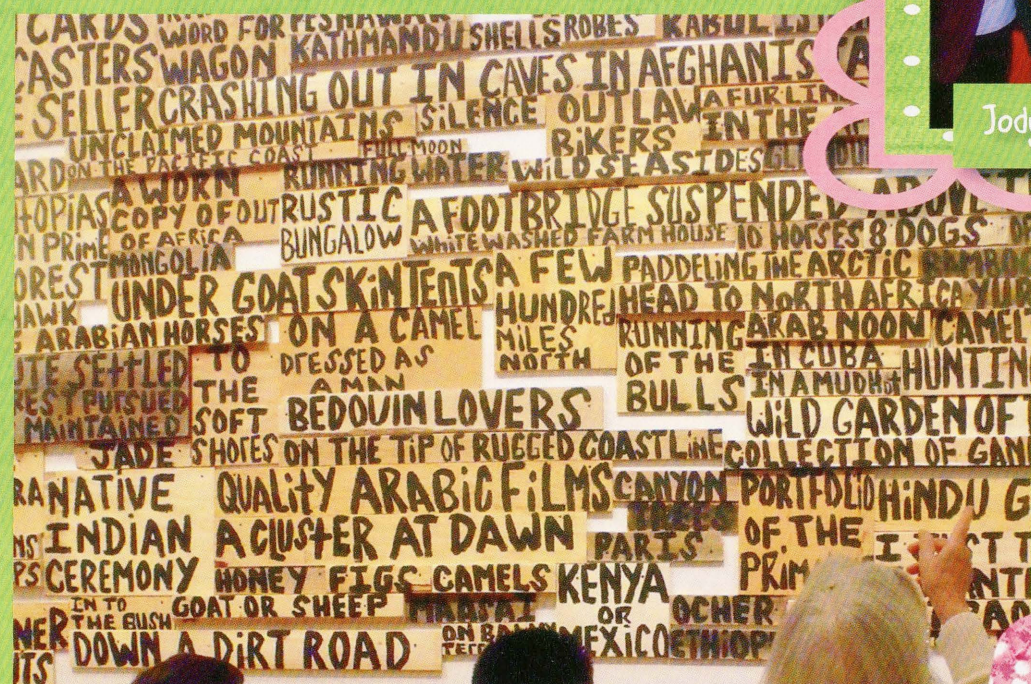 CARDS
WORD FOR
WAGON
PESHAWAR
KATHMANDU
SHELLS
ROBES
KABUL
CASTERS
SELLER
CRASHING OUT IN CAVES IN AFGHANIS
UNCLAIMED MOUNTAINS
SILENCE
OUTLAW
BIKERS
A FUR LIN
IN THE
ON THE PACIFIC COAST
FULL MOON
RUNNING WATER
WILD SEASIDES
ARD
A WORN
COPY OF OUT
OF AFRICA
RUSTIC
BUNGALOW
A FOOTBRIDGE SUSPENDED ABOVE
WHITEWASHED FARM HOUSE
10 HORSES 8 DOGS
TOPIAS
N PRIME
MONGOLIA
OREST
UNDER GOATSKIN TENTS
A FEW
HUNDRED
MILES
NORTH
PADDELING THE ARCTIC
BAMBOO
HEAD TO NORTH AFRICA
YUR
HAWK
ARABIAN HORSES
ON A CAMEL
DRESSED AS
A MAN
RUNNING
OF THE
BULLS
ARAB NOON
CAMEL
IN CUBA
IN A MUD HUT
HUNTIN
UTE SETTLED
REST PURSUED
MAINTAINED
TO
THE
SOFT
SHORES
BEDOUIN LOVERS
WILD GARDEN OF
JADE
ON THE TIP OF RUGGED COASTLINE
COLLECTION OF GAN
RA
NATIVE
INDIAN
CEREMONY
QUALITY ARABIC FILMS
CANYON
TREES
PORTFOLIO
OF THE
PRIM
HINDU G
A CLUSTER AT DAWN
PARIS
HONEY FIGS CAMELS
KENYA
OR
MEXICO
IN TO
THE BUSH
GOAT OR SHEEP
MAASAI
OCHER
ETHIOP
NER
DOWN A DIRT ROAD
Jod